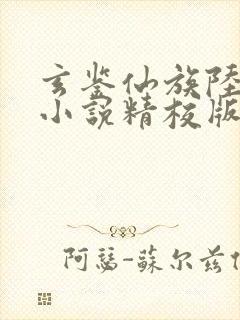 玄鉴仙族陸
小説精校版
阿瑟-蘇尔兹